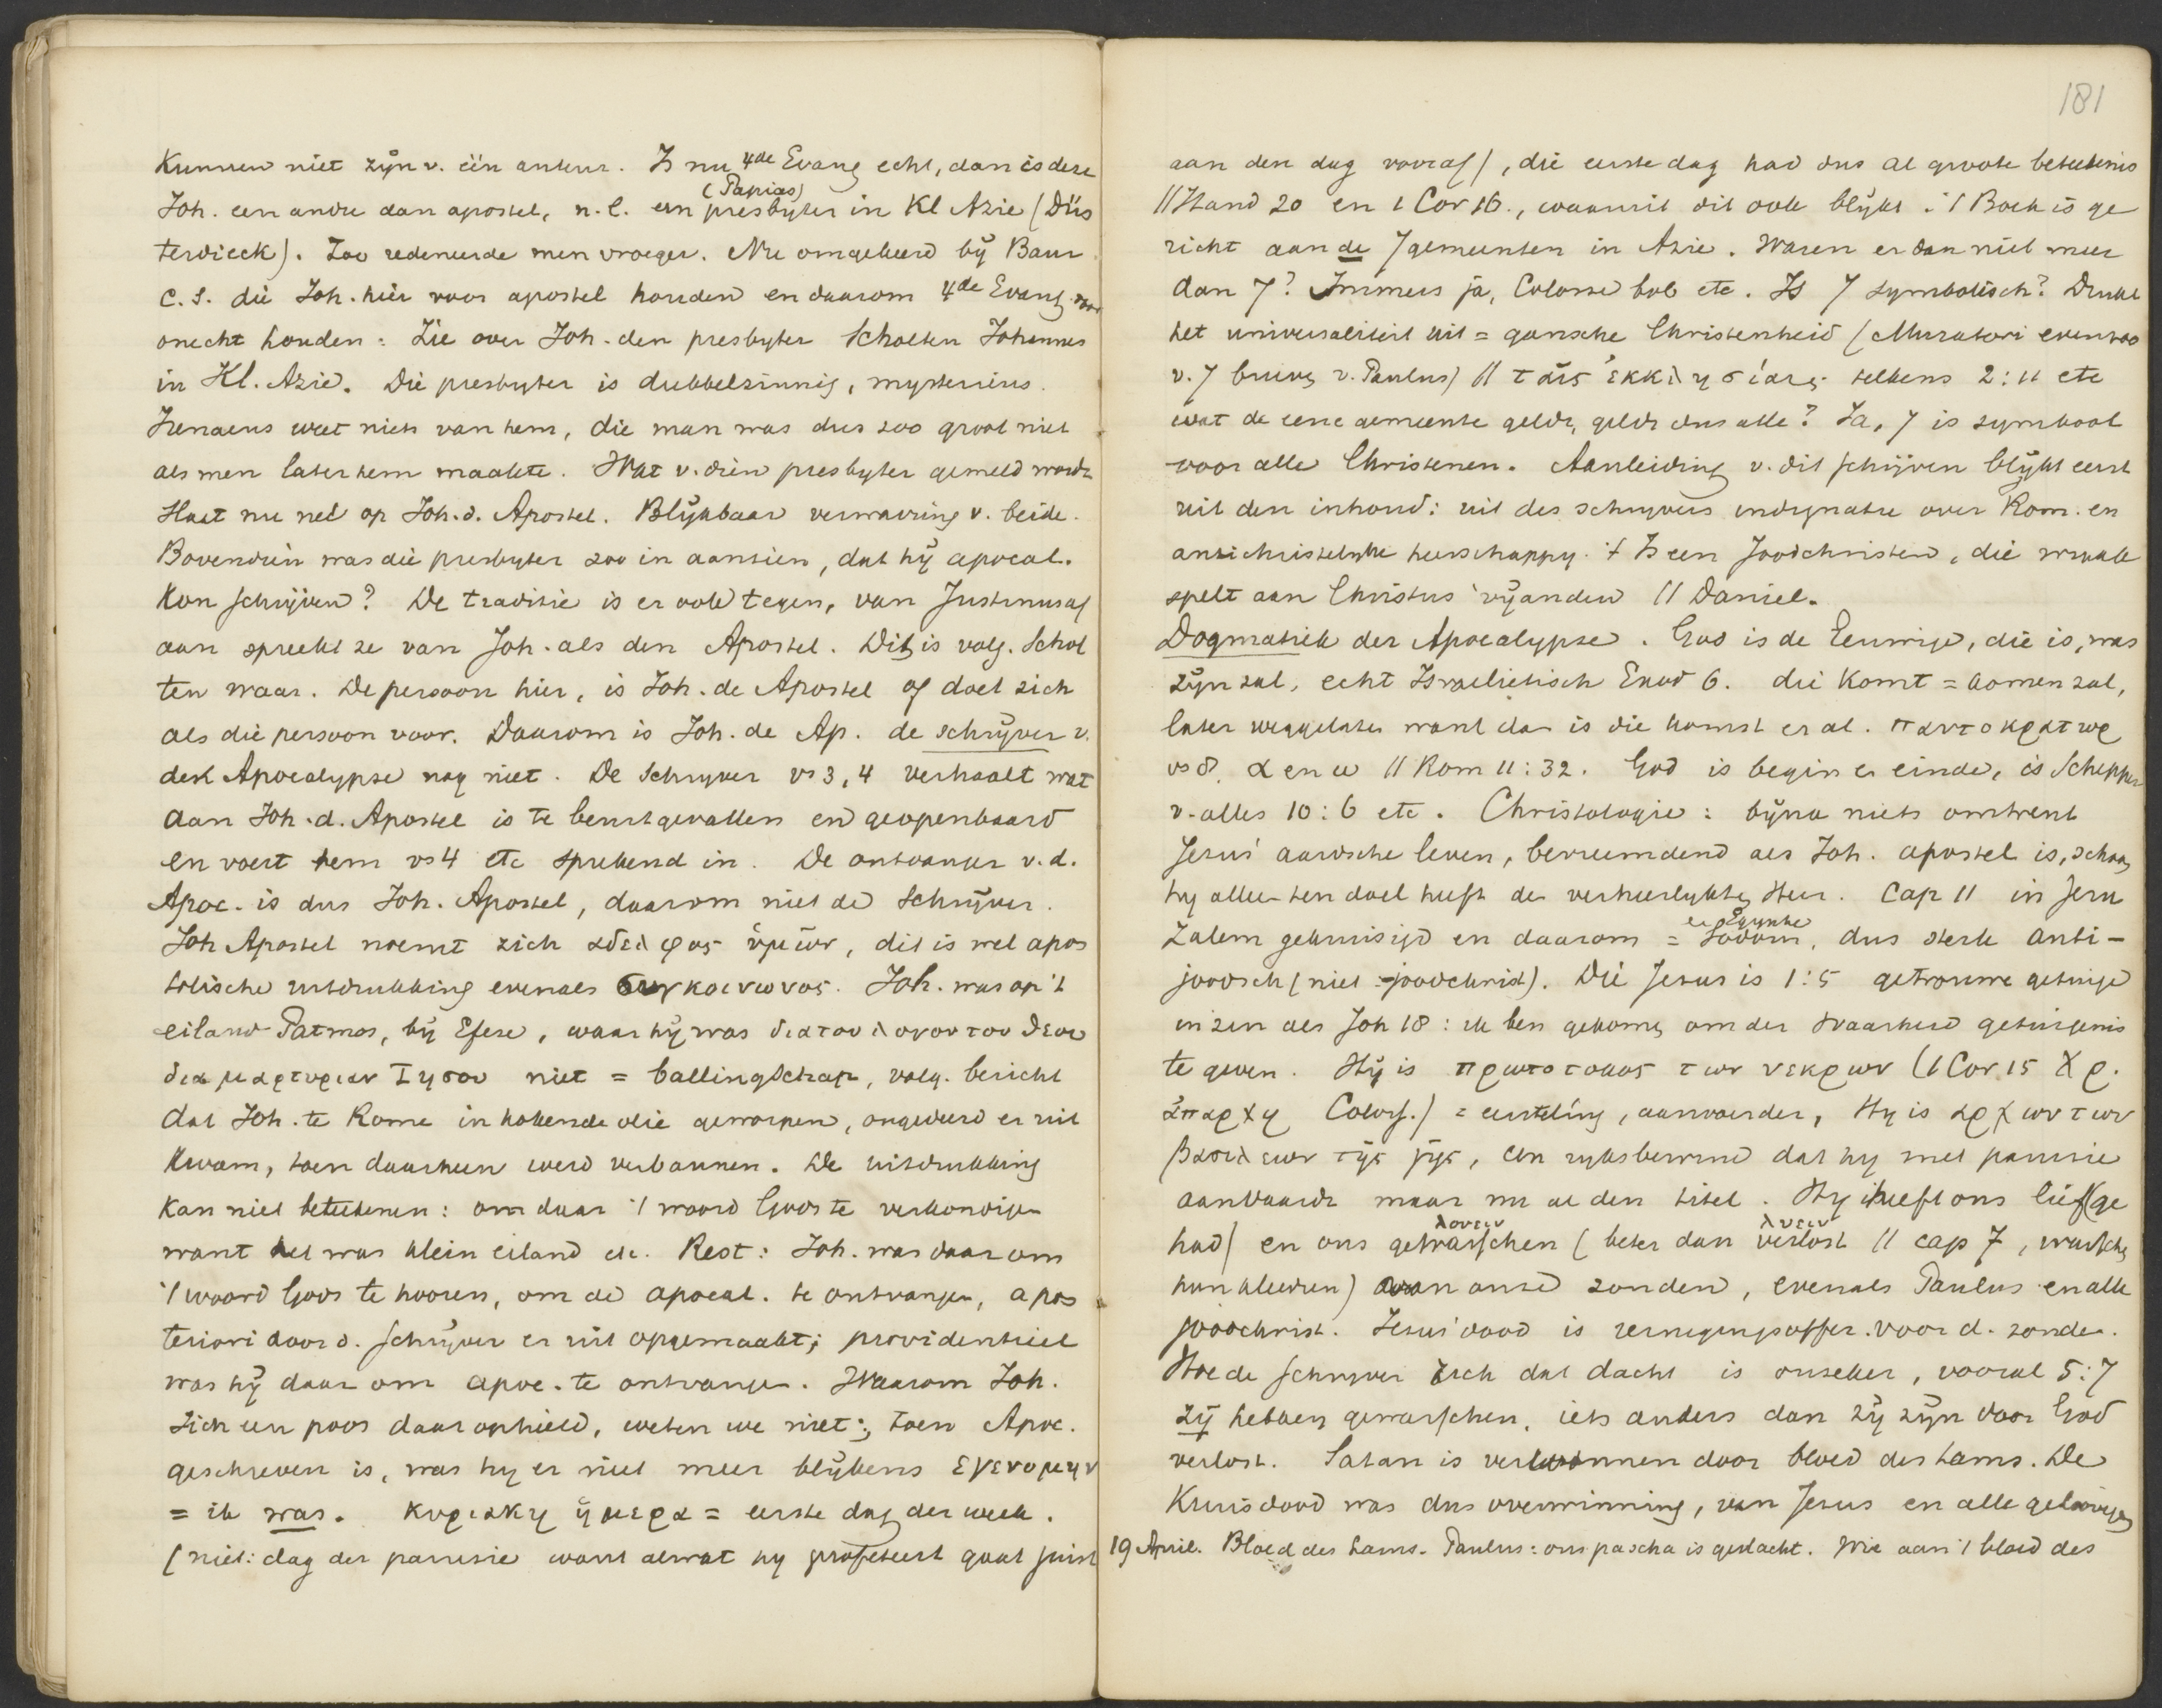 kunnen niet zijn v. één auteur. Is nu 4de Evang echt, dan is deze
(Papias)
Joh. een andre dan apostel, n.l. een presbyter in Kl Azie (Düs
terdieck). Zoo redeneerde men vroeger. Nu omgekeerd bij Baur
c.s. die Joh. hier voor apostel houden en daarom 4de Evang. voor
onecht houden: Zie over Joh. den presbyter Scholten Johannes
in Kl. Azie. Die presbyter is dubbelzinnig, mysterieus.
Irenaeus weet niets van hem, die man was dus zoo groot niet
als men later hem maakte. Wat v. dien presbyter gemeld wordt
slaat nu net op Joh. d. Apostel. Blijkbaar verwarring v. beide.
Bovendien was die presbyter zoo in aanzien, dat hij apocal.
kon schrijven? De traditie is er ook tegen, van Justinus af
aan spreekt ze van Joh. als den Apostel. Dit is volg. Schol
ten waar. De persoon hier, is Joh. de Apostel of doet zich
als die persoon voor. Daarom is Joh. de Ap. de schrijver v.
deze Apocalypse nog niet. De Schryver vs 3, 4 verhaalt wat
aan Joh. d. Apostel is te beurt gevallen en geopenbaard
en voert hem vs 4 etc sprekend in. De ontvanger v. d.
Apoc. is dus Joh. Apostel, daarom niet de Schrijver.
Joh Apostel noemt zich αδελφος ὑμων, dit is wel apos
tolische uitdrukking evenals συγκοινωνος. Joh. was op 't
eiland Patmos, bij Efese, waar hij was δια τον λογον του θεου
δια μαρτυριαν Ιησου niet = ballingschap, volg. bericht
dat Joh. te Rome in kokende olie geworpen, ongedeerd er uit
kwam, toen daarheen werd verbannen. De uitdrukking
kan niet beteekenen: om daar 't woord Gods te verkondigen
want het was klein eiland etc. Rest: Joh. was daar om
't woord Gods te hooren, om de apocal. te ontvangen, a pos
teriori door d. schrijver er uit opgemaakt; providentieel
was hij daar om apoc. te ontvangen. Waarom Joh.
zich een poos daar ophield, weten we niet; toen Apoc.
geschreven is, was hy er niet meer blijkens εγενομην
= ik was. κυριακη ἡμερα = eerste dag der week.
(niet: dag der parousie want alwat hy profeteert gaat juist
181
aan den dag vooraf), die eerste dag had dus al groote beteekenis
// Hand 20 en 1 Cor 16., waaruit dit ook blijkt. 't Boek is ge
richt aan de 7 gemeenten in Azie. Waren er dan niet meer
dan 7? Immers ja, Colosse bvb etc. Is 7 symbolisch? Drukt
het universaliteit uit = gansche Christenheid (Muratori evenzoo
v. 7 briev. v. Paulus) // ταις ἐκκλησίαις telkens 2:11 etc
wat de eene gemeente geldt, geldt dus alle? Ja, 7 is symbool
voor alle Christenen. Aanleiding v. dit schrijven blijkt eerst
uit den inhoud: uit des schryvers indignatie over Rom. en
antichristelyke heerschappy. 't Is een Joodchristen, die wraak
spelt aan Christus' vijanden // Daniel.
Dogmatiek der Apocalypse. God is de Eeuwige, die is, was
zijn zal, echt Israelietisch Exod 6. die komt = komen zal,
later weggelaten want dan is die komst er al. παντοκρατωρ
vs 8. α en ω // Rom 11:32. God is begin en einde, is Schepper
v. alles 10:6 etc. Christologie: bijna niets omtrent
Jesus' aardsche leven, bevreemdend als Joh. apostel is, schoon
hy alleen ten doel heeft den verheerlykten Heer. Cap 11 in Jeru
en Egypte
zalem gekruisigd en daarom = Sodom, dus sterk anti-
joodsch (niet = joodchrist). Die Jesus is 1:5 getrouwe getuige
in zin als Joh 18: ik ben gekomen om der Waarheid getuigenis
te geven. Hij is πρωτοτοκος των νεκρων (1 Cor 15 Χρ.
ἀπαρχη Coloss.) = eersteling, aanvoerder, Hy is αρχων των
βασιλεων της γης, een ryksbewind dat hy met parousie
aanvaardt maar nu al den titel. Hy heeft ons lief (ge
λουειν λυειν
had) en ons gewasschen (beter dan verlost // cap 7, wasschen
hun kleeren) van onze zonden, evenals Paulus en alle
joodchrist. Jesus' dood is reinigingsoffer voor d. zonden.
Hoe de schryver zich dat dacht is onzeker, vooral 5:7
zij hebben gewasschen, iets anders dan zij zijn door God
verlost. Satan is verwonnen door bloed des Lams. De
Kruisdood was dus overwinning, van Jesus en alle geloovigen
19 April. Bloed des Lams. Paulus: ons pascha is geslacht. Wie aan 't bloed des